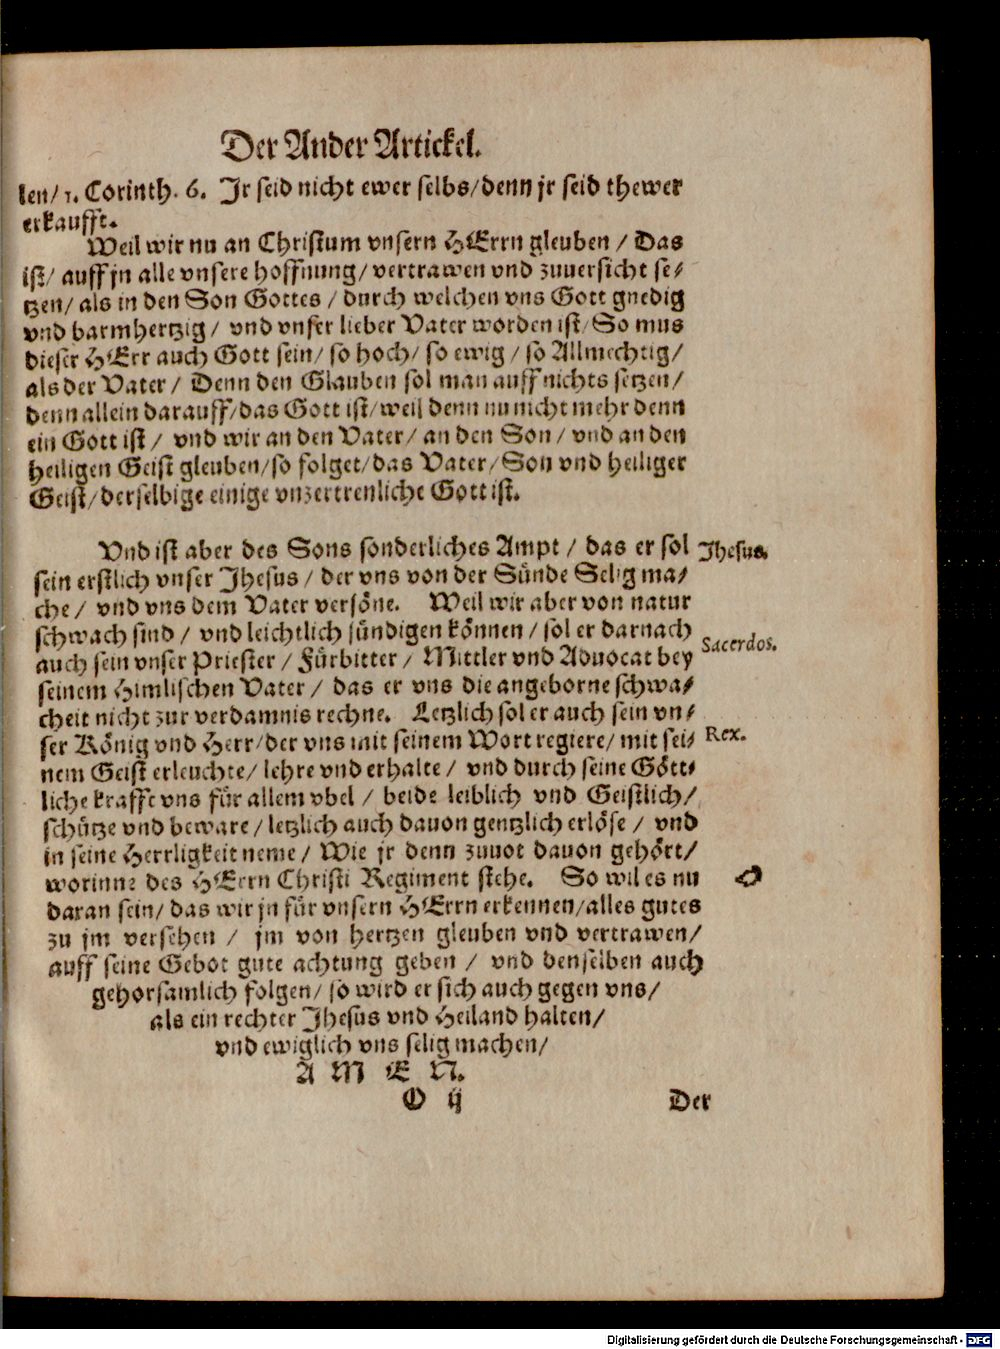 Der Ander Artickel.
len/ 1. Corinth. 6. Jr seid nicht ewer selbs/denn jr seid thewer
erkaufft.
Weil wir nu an Christum vnsern HErrn gleuben / Das
ist/ auff jn alle vnsere hoffnung/ vertrawen vnd zuuersicht se⸗
tzen/ als in den Son Gottes / durch welchen vns Gott gnedig
vnd barmhertzig / vnd vnser lieber Vater worden ist/ So mus
dieser HErr auch Gott sein/ so hoch/ so ewig / so Allmechtig/
als der Vater / Denn den Glauben sol man auff nichts setzen/
denn allein darauff/das Gott ist/weil denn nu nicht mehr denn
ein Gott ist / vnd wir an den Vater/ an den Son / vnd an den
heiligen Geist gleuben/so folget/das Vater/Son vnd heiliger
Geist/derselbige einige vnzertrenliche Gott ist.
Vnd ist aber des Sons sonderliches Ampt / das er sol
Jhesus.
sein erstlich vnser Jhesus / der vns von der Sünde Selig ma⸗
che / vnd vns dem Vater versöne. Weil wir aber von natur
schwach sind / vnd leichtlich sündigen können / sol er darnach
Sacerdos.
auch sein vnser Priester / Fürbitter / Mittler vnd Aduocat bey
seinem Himlischen Vater / das er vns die angeborne schwa⸗
cheit nicht zur verdamnis rechne. Letzlich sol er auch sein vn⸗
ser König vnd Herr/der vns mit seinem Wort regiere/ mit sei⸗
Rex.
nem Geist erleuchte/ lehre vnd erhalte / vnd durch seine Gött⸗
liche krafft vns für allem vbel / beide leiblich vnd Geistlich/
schütze vnd beware / letzlich auch dauon gentzlich erlöse / vnd
in seine Herrligkeit neme / Wie jr denn zuuot dauon gehört/
worinne des HErrn Christi Regiment stehe. So wil es nu
daran sein/ das wir jn für vnsern HErrn erkennen/alles gutes
zu jm versehen / jm von hertzen gleuben vnd vertrawen/
auff seine Gebot gute achtung geben / vnd denselben auch
gehorsamlich folgen/ so wird er sich auch gegen vns/
als ein rechter Jhesus vnd Heiland halten/
vnd ewiglich vns selig machen/
A M E N.
O ij
Der
Digitalisierung gefördert durch die Deutsche Forschungsgemeinschaft - DFG